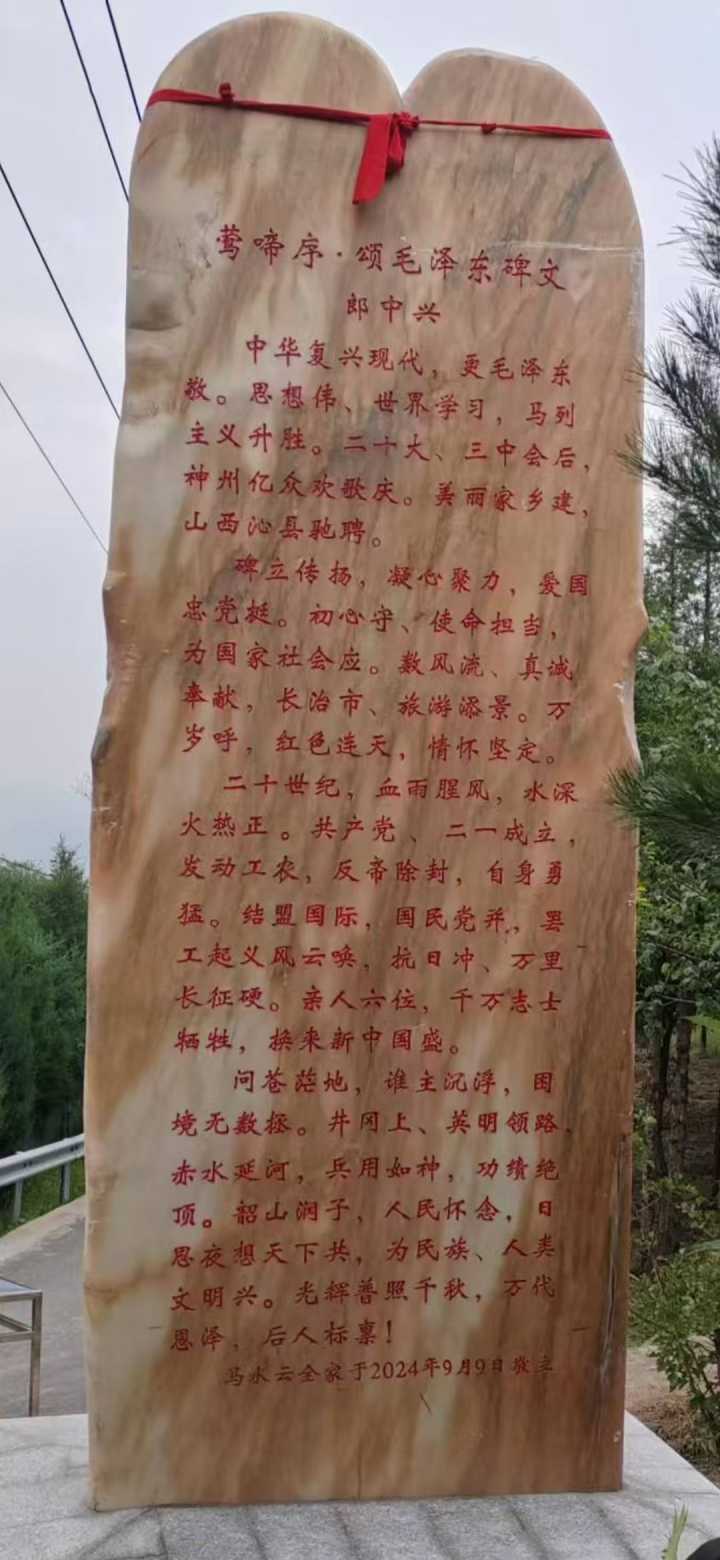 莺啼序·颂毛泽东碑文
郎中兴
中华复兴现代，更毛泽东
敬。思想伟、世界学习，马列
主义升胜。二十大、三中会后，
神州亿众欢歌庆。美丽家乡建，
山西沁县驰聘。
碑立传扬，凝心聚力，爱国
忠党挺。初心守、使命担当，
为国家社会应。数风流、真诚
奉献，长治市、旅游添景。万
岁呼，红色连天，情怀坚定。
二十世纪，血雨腥风，水深
火热正。共产党、二一成立，
发动工农，反帝除封，自身勇
猛。结盟国际，国民党并，罢
工起义风云唤，抗日冲、万里
长征硬。亲人六位，千万志士
牺牲，换来新中国盛。
问苍茫地，谁主沉浮，困
境无数拯。井冈上、英明领路，
赤水延河，兵用如神，功绩绝
顶。韶山润子，人民怀念，日
思夜想天下共，为民族、人类
文明兴。光辉普照千秋，万代
恩泽，后人标禀！
马水云全家于2024年9月9日敬立